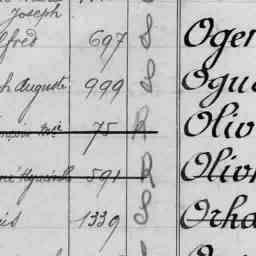 Joseph
lfred 697 S Oger
h Auguste 999 S Ogu
75 R Oliv
né Hyacinthe 591 R Olivi
is 1339 S Orha